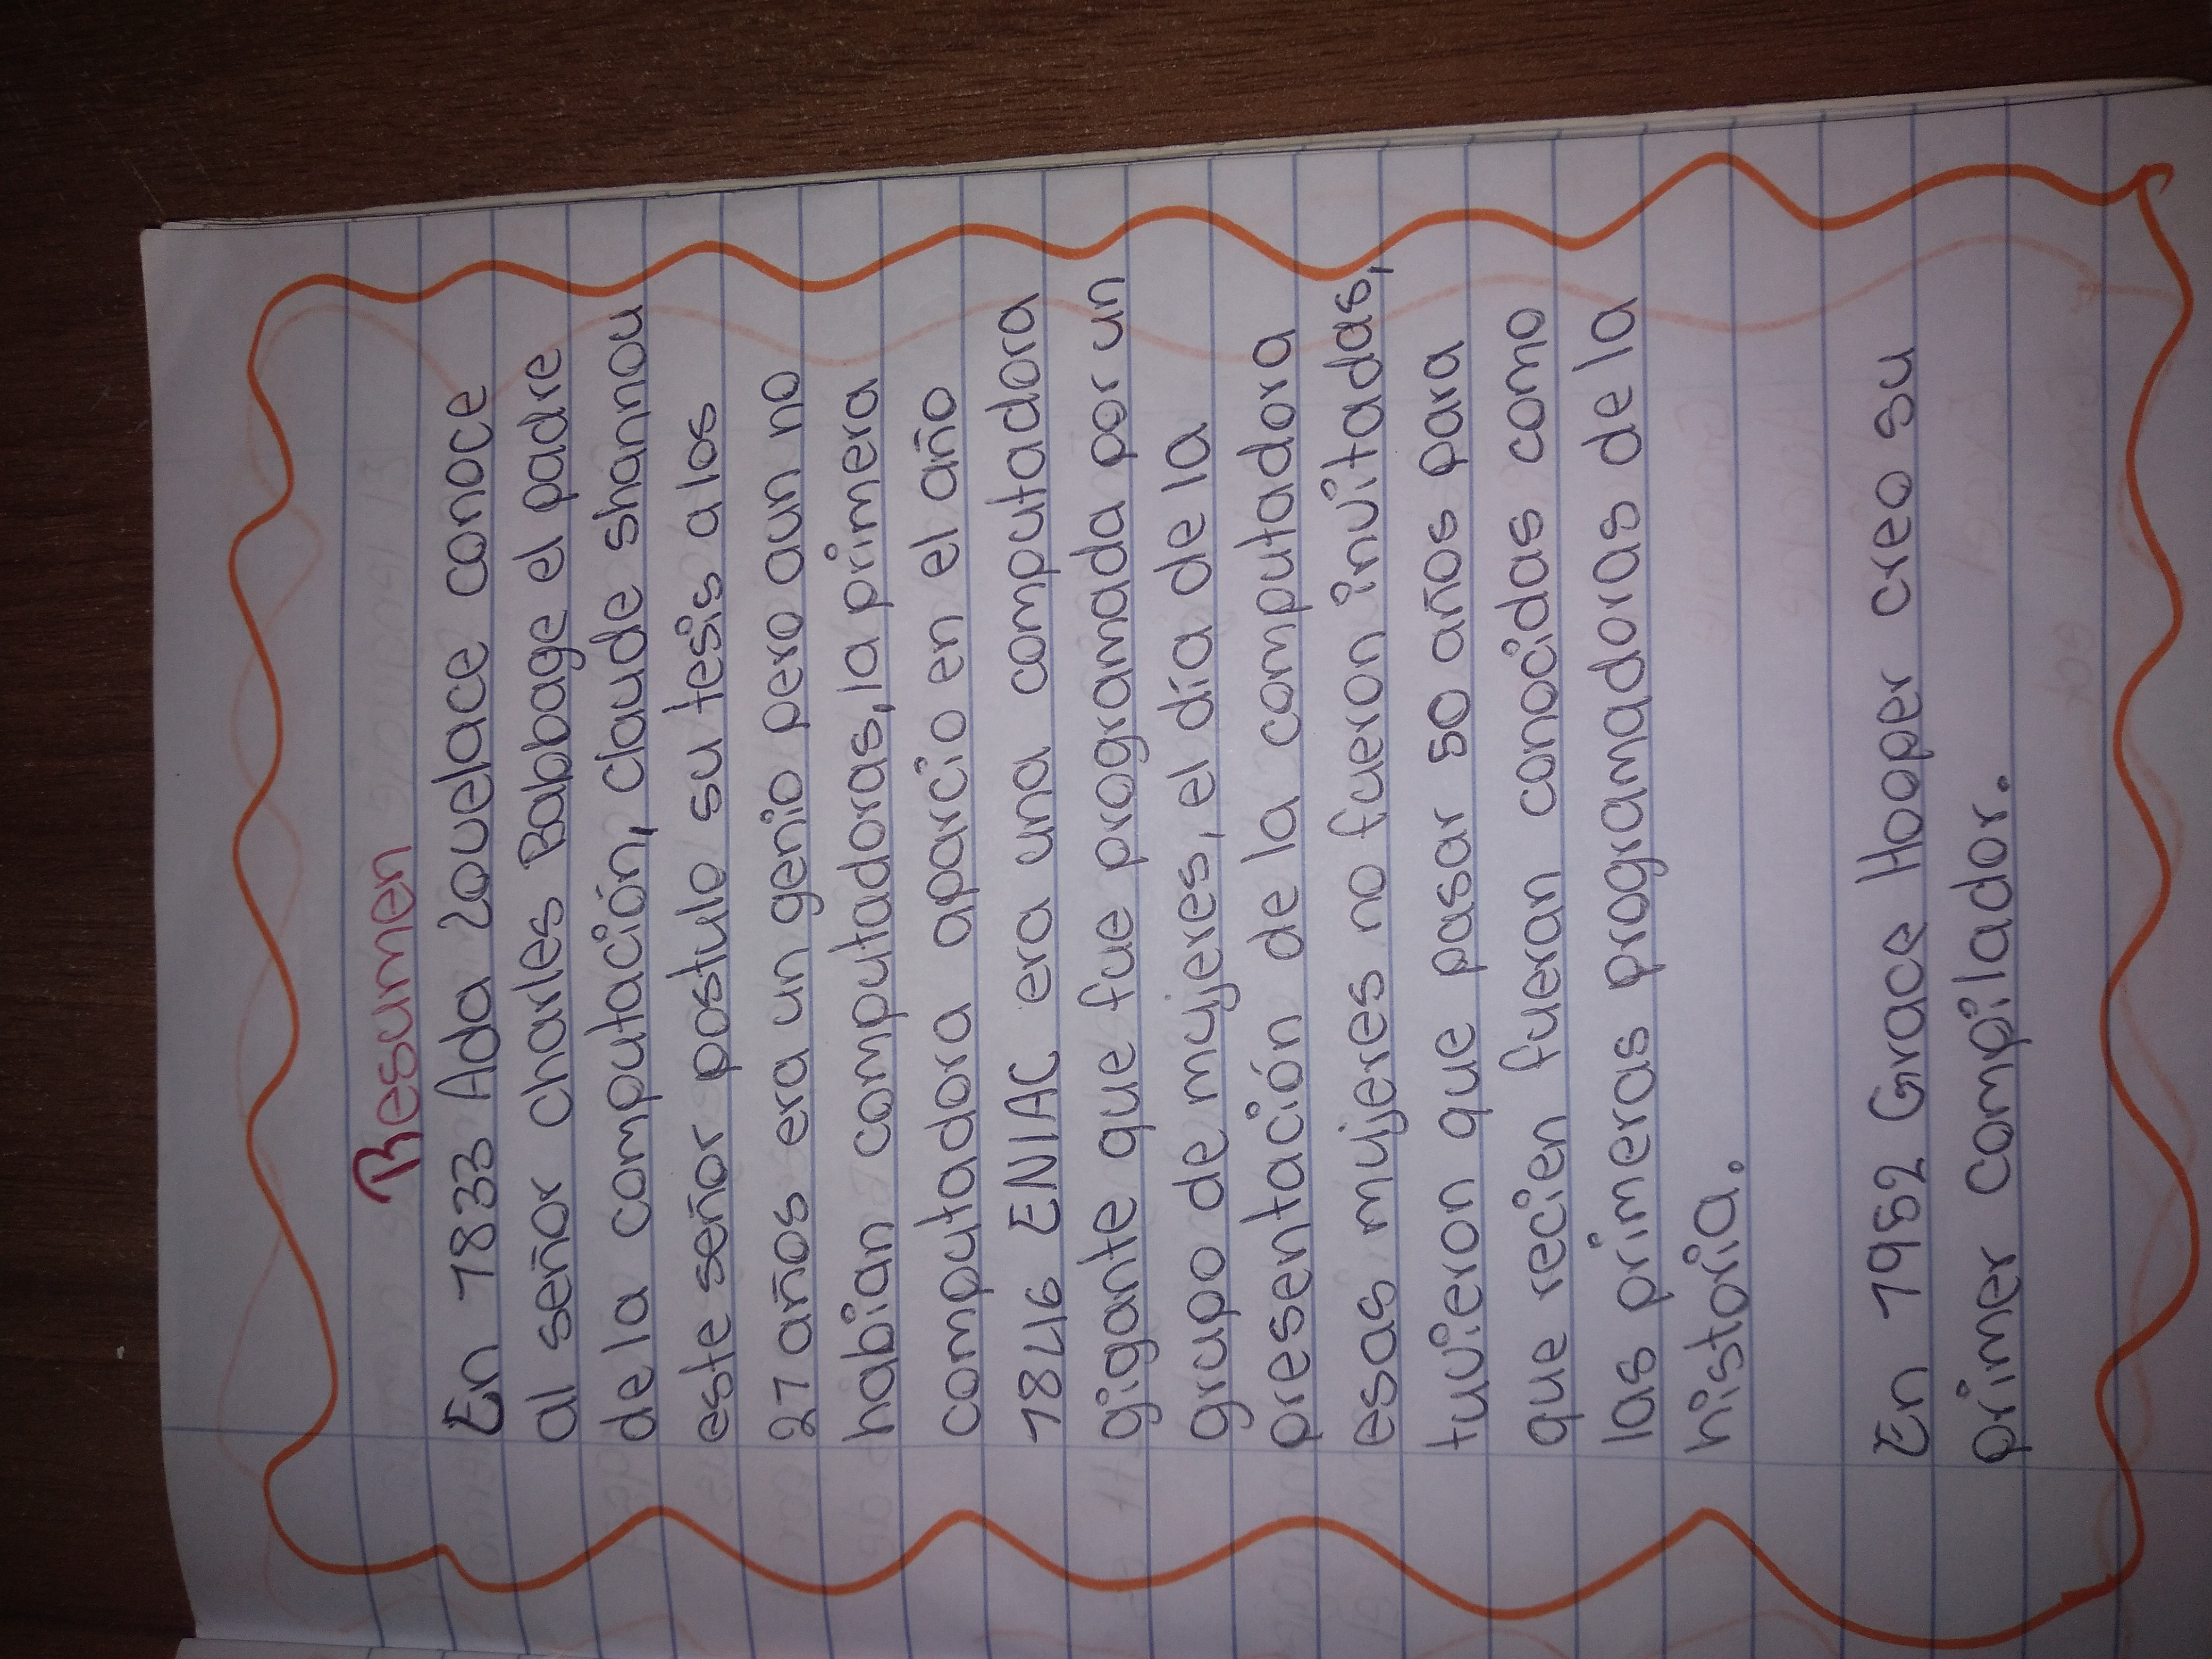 Resumen
En 1833 Ada Lovelace conoce
al señor charles Babbage el padre
de la computación, claude shannou
este señor postulo su tesis a los
21 años era un genio pero aun no
habian computadoras, la primera
computadora aparcio en el año
1846 ENIAC era una computadora
gigante que fue programada por un
grupo de mujeres, el día de la
presentación de la computadora
esas mujeres no fueron invitadas,
tuvieron que pasar 50 años para
que recien fueran conocidas como
las primeras programadoras de la
historia.
En 1952 Grace Hooper creo su
primer compilador.